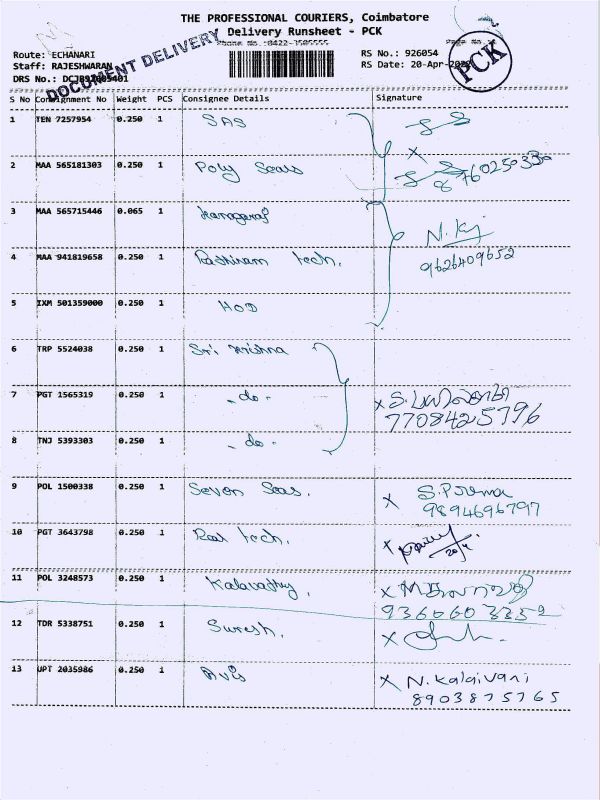 THE PROFESSIONAL COURIERS, Coimbatore
Delivery Runsheet - PCK
Phone No.:0422-3505555
Page No.
Route: ECHANARI
RS No.: 926054
Staff: RAJESHWARAN
RS Date: 20-Apr-
DRS No.:
DOCUMENT DELIVERY
PCK
S No Consignment No Weight PCS Consignee Details Signature
1 TEN 7257954 0.250 1 SAS
2 MAA 565181303 0.250 1 Poly Seals
8760250330
3 MAA 565715446 0.065 1 Kanagaraj
N. Kj
4 MAA 941819658 0.250 1 tech.
9626409652
5 IXM 501359000 0.250 1 HOD
6 TRP 5524038 0.250 1 Sri Krishna
7 PGT 1565319 0.250 1 - do - x
7708425796
8 TNJ 5393303 0.250 1 - do -
9 POL 1500338 0.250 1 Seven Seas. x S. Prema
9894696797
10 PGT 3643798 0.250 1 tech. x
20/4
11 POL 3248573 0.250 1 Kalavathy. x
9360603359
12 TDR 5338751 0.250 1 Suresh. x
13 UPT 2035986 0.250 1 Avis x N. Kalaivani
8903875765